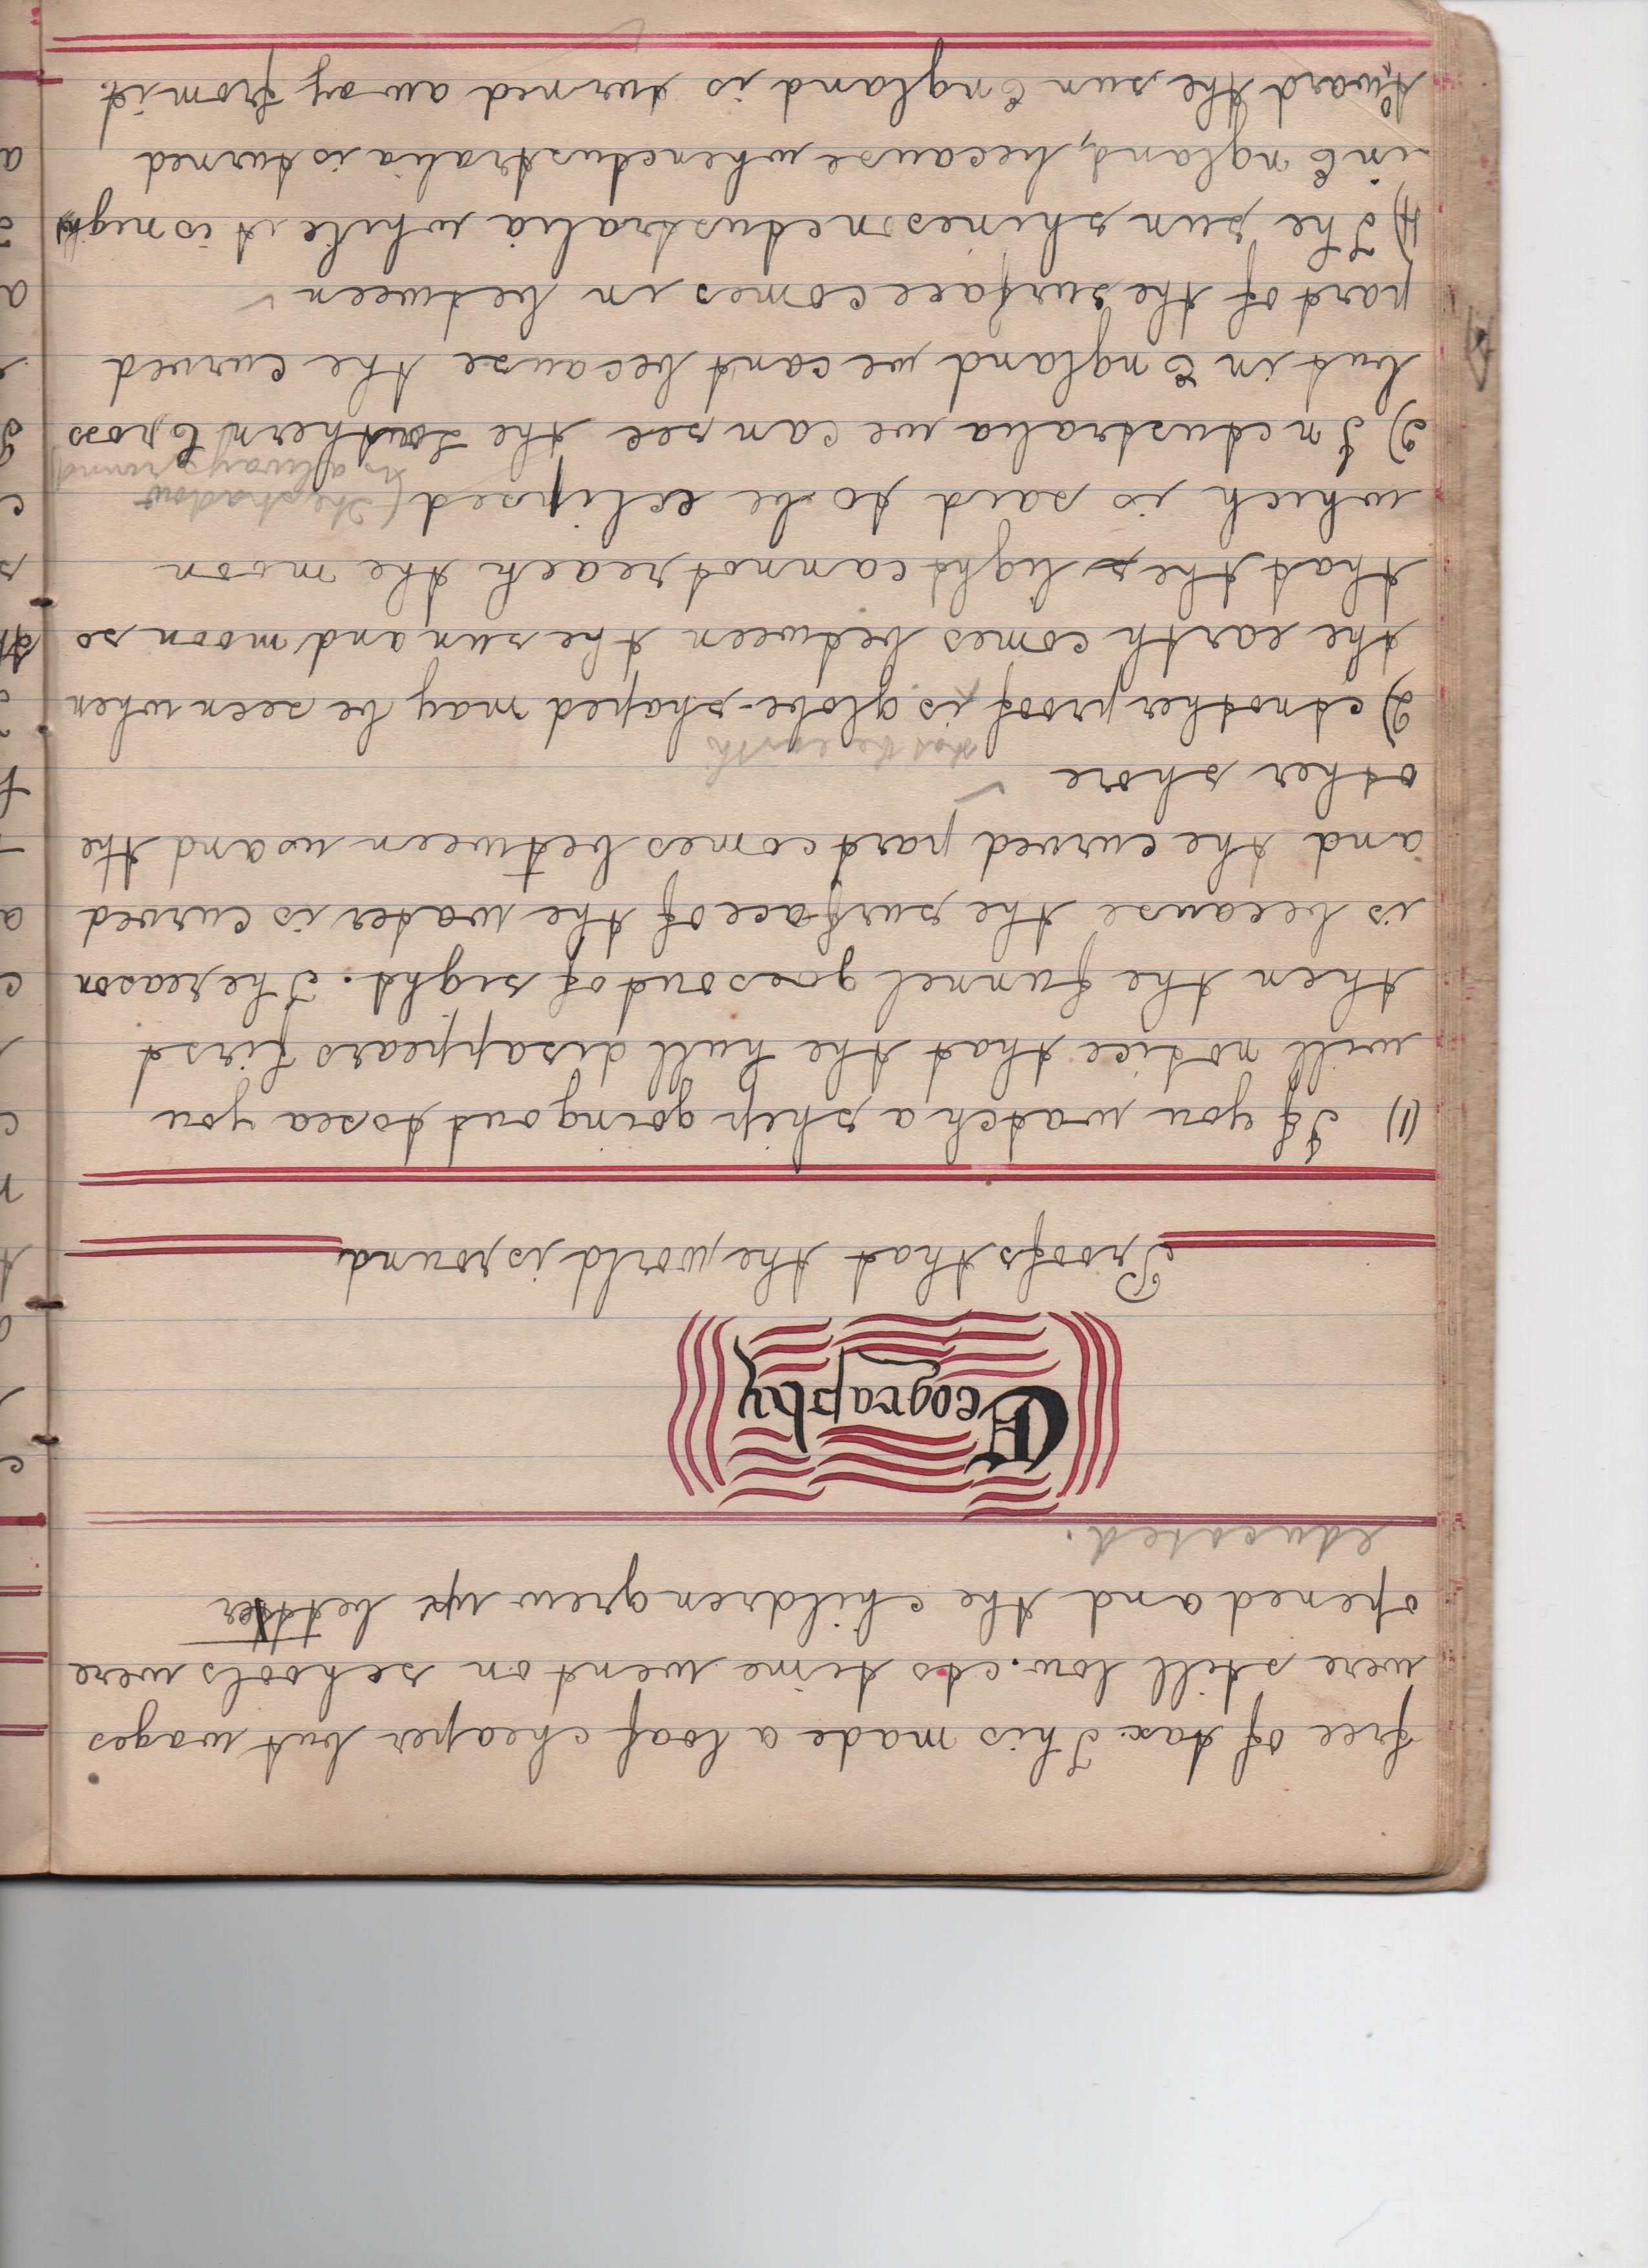 free of tax. This made a loaf cheaper but wages
were still low. As time went on schools were
opened and the children grew up better
educated.
Geography
Proofs that the world is round
(1) If you watch a ship going out to sea you
will notice that the hull disappears first
then the funnel goes out of sight. The reason
is because the surface of the water is curved
and the curved part comes between us and the
other shore
that the earth
2) Another proof is globe-shaped may be seen when
the earth comes between the sun and moon so
that the light cannot reach the moon
which is said to be eclipsed (The shadow
is always round)
3) In Australia we can see the Southern Cross
but in England we cant because the curved
part of the surface comes in between
4) The sun shines on Australia while it is night
in England, because when Australia is turned
toward the sun England is turned away from it.